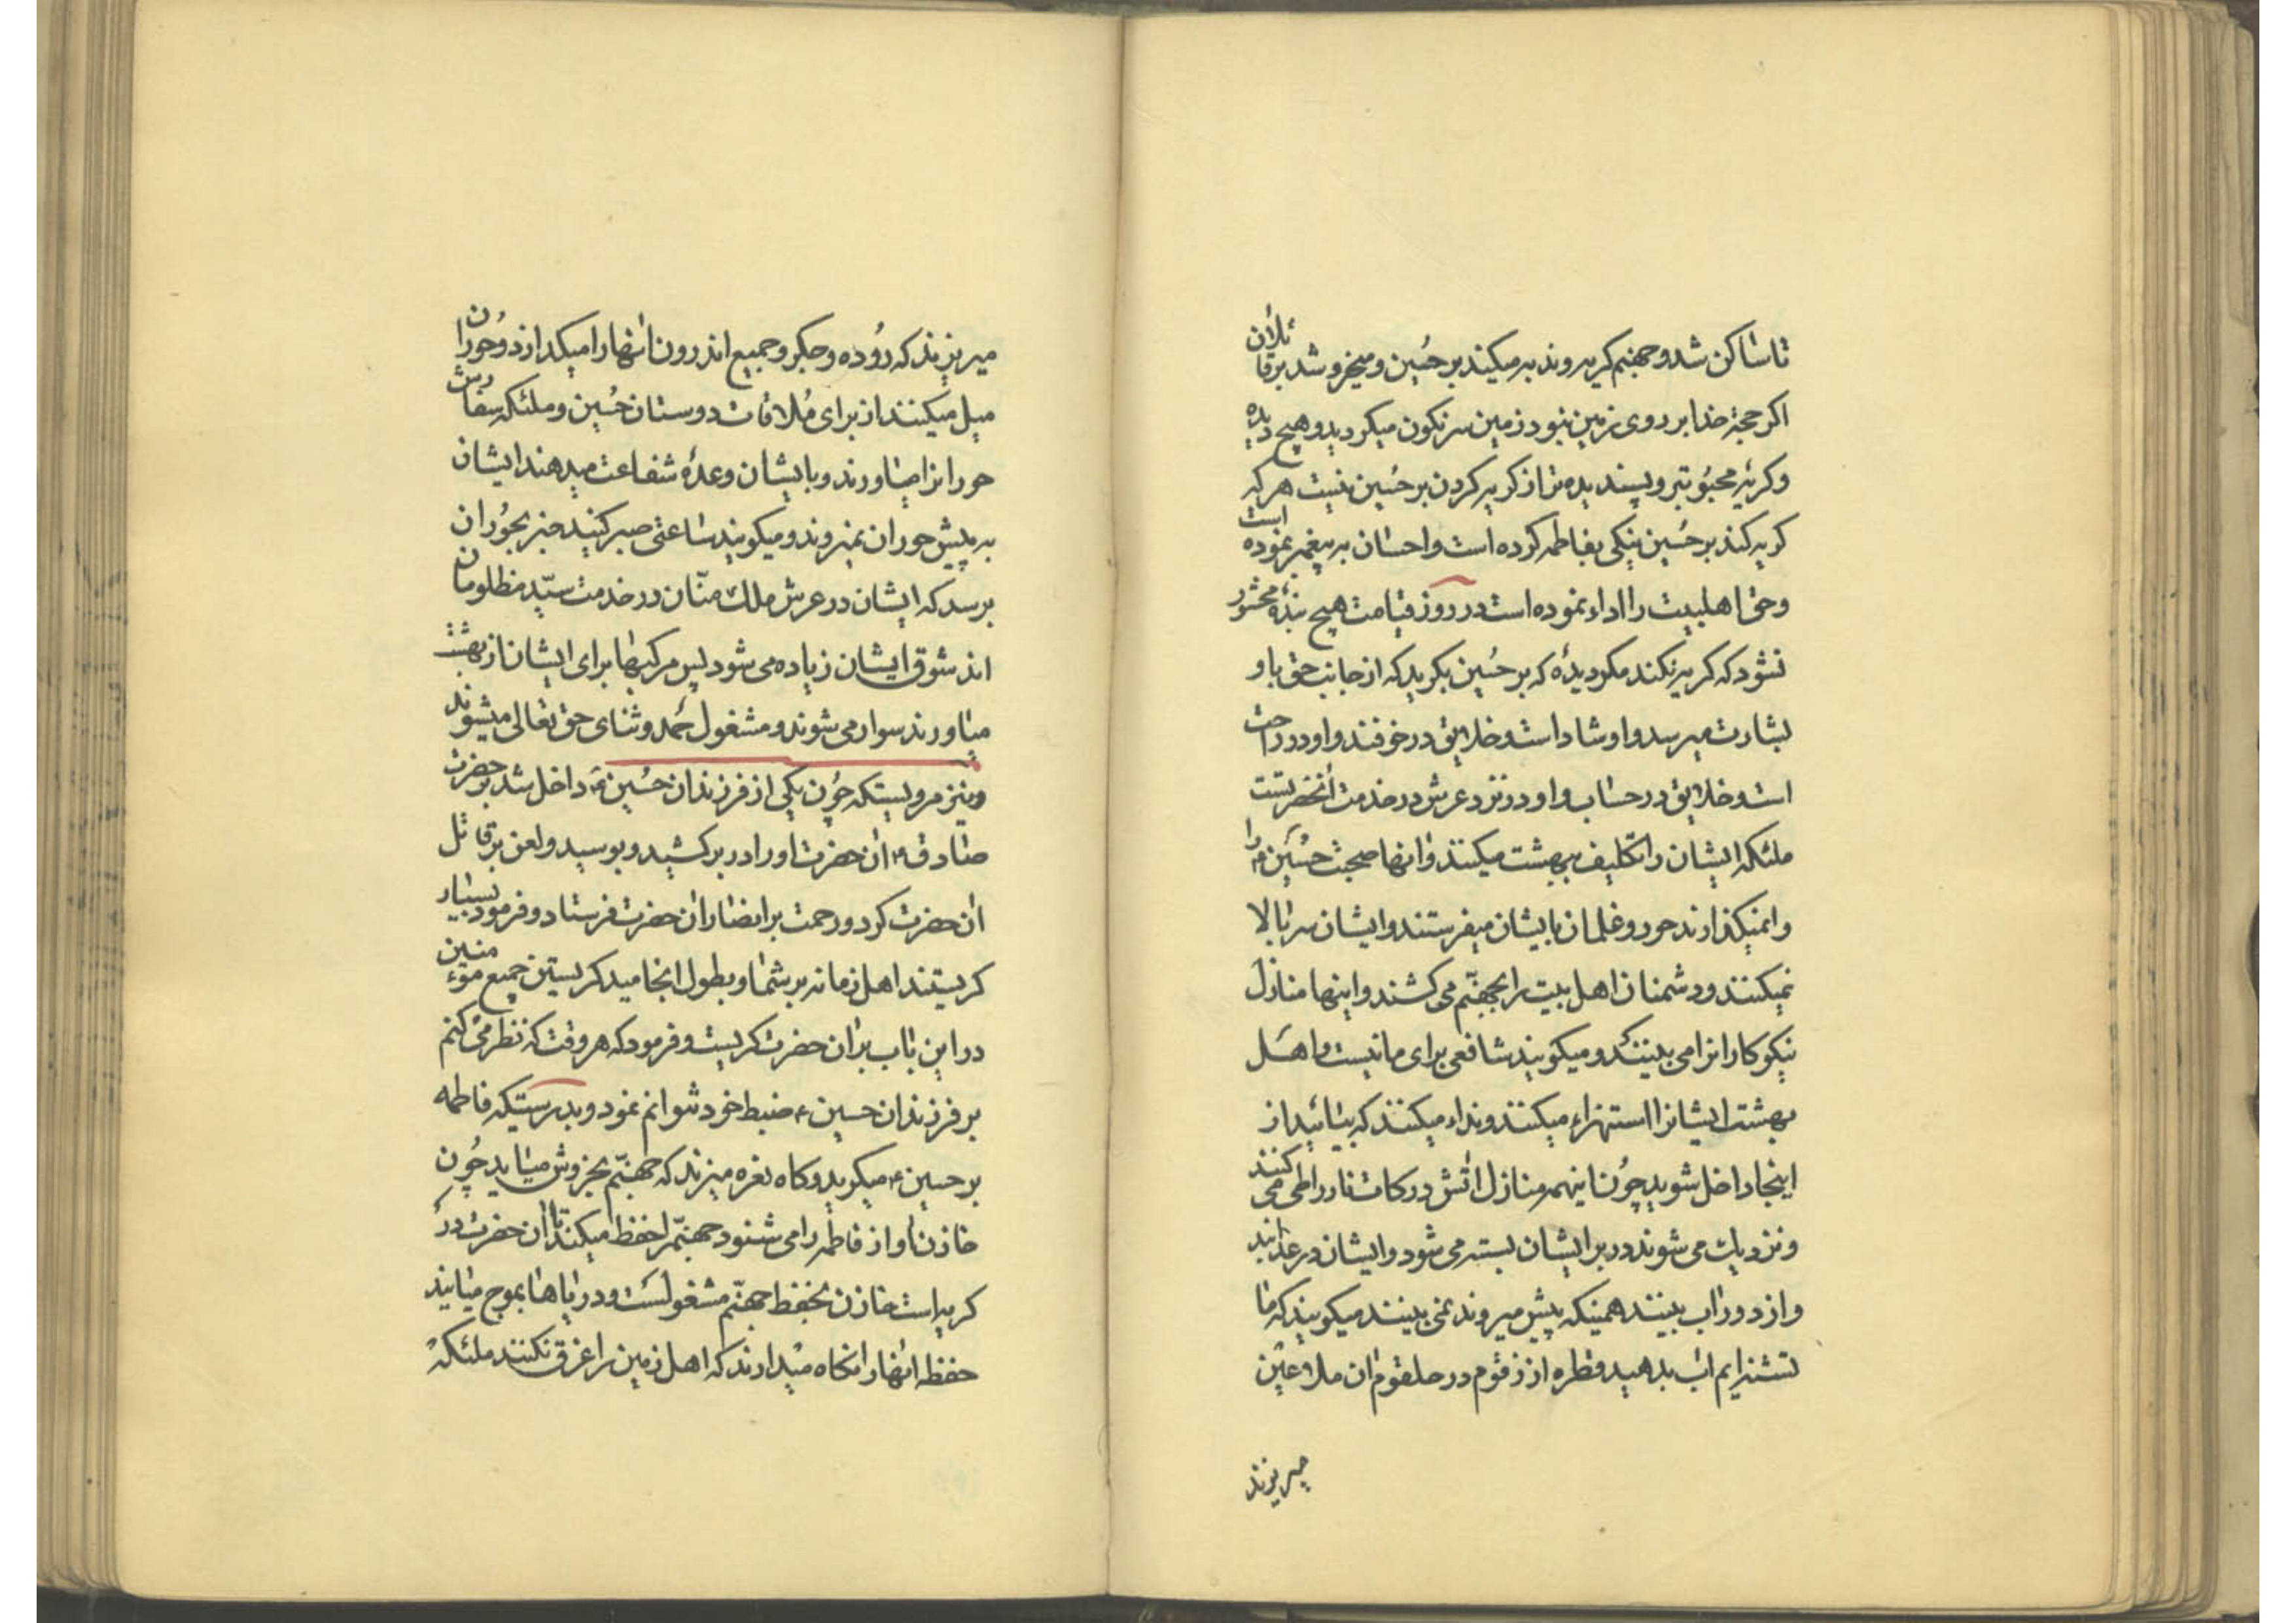 تا ساکن شد و جهنم کریه و ندبه میکند بر حُسین و میخروشد بر قاتلان
اکر حجة خدا بر روی زمین نبود زمین سرنکون میکردید و هیچ دیده
و کریهٔ محبُوبتر و پسندیده تر از کریه کردن بر حُسین نیست هر که
کریه کند بر حُسین نیکی بفاطمه کرده است و احسان به پیغمبر نموده است
و حق اهلبیت را اداء نموده است در روز قیامت هیچ بندهٔ محشور
نشود که کریه نکند مکر دیدهٔ که بر حُسین بکرید که از جانب حق باو
بشارت میرسد و او شاد است و خلایق در خوفند و او در راحت
است و خلایق در حساب و او در نزد عرش در خدمت آنحضرتست
ملئکه ایشان را تکلیف ببهشت میکنند و انها صحبت حسُین ع را
وا نمیکذارند حور و غلمان بایشان میفرستند و ایشان سر بالا
نمیکنند و دشمنان اهل بیت را بجهنّم می کشند و اینها منازل
نیکوکارانرا می بینند و میکویند شافعی برای ما نیست و اهل
بهشت ایشانرا استهزاء میکنند و نداء میکنند که بیائید از
اینجا داخل شوید چُون اینهمه منازل اتش و درکات نار را طی می کنند
و نزدیک می شوند در بر ایشان بسته می شود و ایشان در عذابند
و از دور اب بینند همینکه پیش میروند نمی بینند میکویند که ما
تشنه ایم اب بدهید قطره از زقوم در حلقوم ان ملاعین
میریزند
میریزند که رُوده و جکر و جمیع اندرون انها را میکدازد و حُوران
میل میکنند از برای مُلاقات دوستان حُسین و ملئکه سفارش
حورانرا میاورند و بایشان وعدهٔ شفاعت میدهند ایشان
به پیش حوران نمیروند و میکویند ساعتی صبر کنید خبر بحُوران
برسد که ایشان در عرش ملک منّان در خدمت سیّد مظلومان
اند شوق ایشان زیاده می شود پس مرکبها برای ایشان از بهشت
میاورند سوار می شوند و مشغول حمد و ثنای حق تعالی میشوند
و نیز مرویستکه چُون یکی از فرزندان حُسین ع داخل شد بر حضرت
صادق ع ان حضرت او را در بر کشید و بوسید و لعن بر قاتل
ان حضرت کرد و رحمت بر انصار ان حضرت فرستاد و فرمود بسیار
کریستند اهل زمانه بر شما و بطول انجامید کریستن جمیع مؤمنین
در این باب بر ان حضرت کریست و فرمود که هر وقت که نظر می کنم
بر فرزندان حسین ع ضبط خود نتوانم نمود و بدرستیکه فاطمه
بر حسین ع میکرید و کاه نعره میزند که جهنّم بخروش میاید چُون
خازن اواز فاطمه را می شنود جهنّم را حفظ میکند تا ان حضرت در
کریه است خازن بحفظ جهنّم مشغولست و دریاها بموج میایند
حفظه انها را نکاه میدارند که اهل زمین را غرق نکنند ملئکه